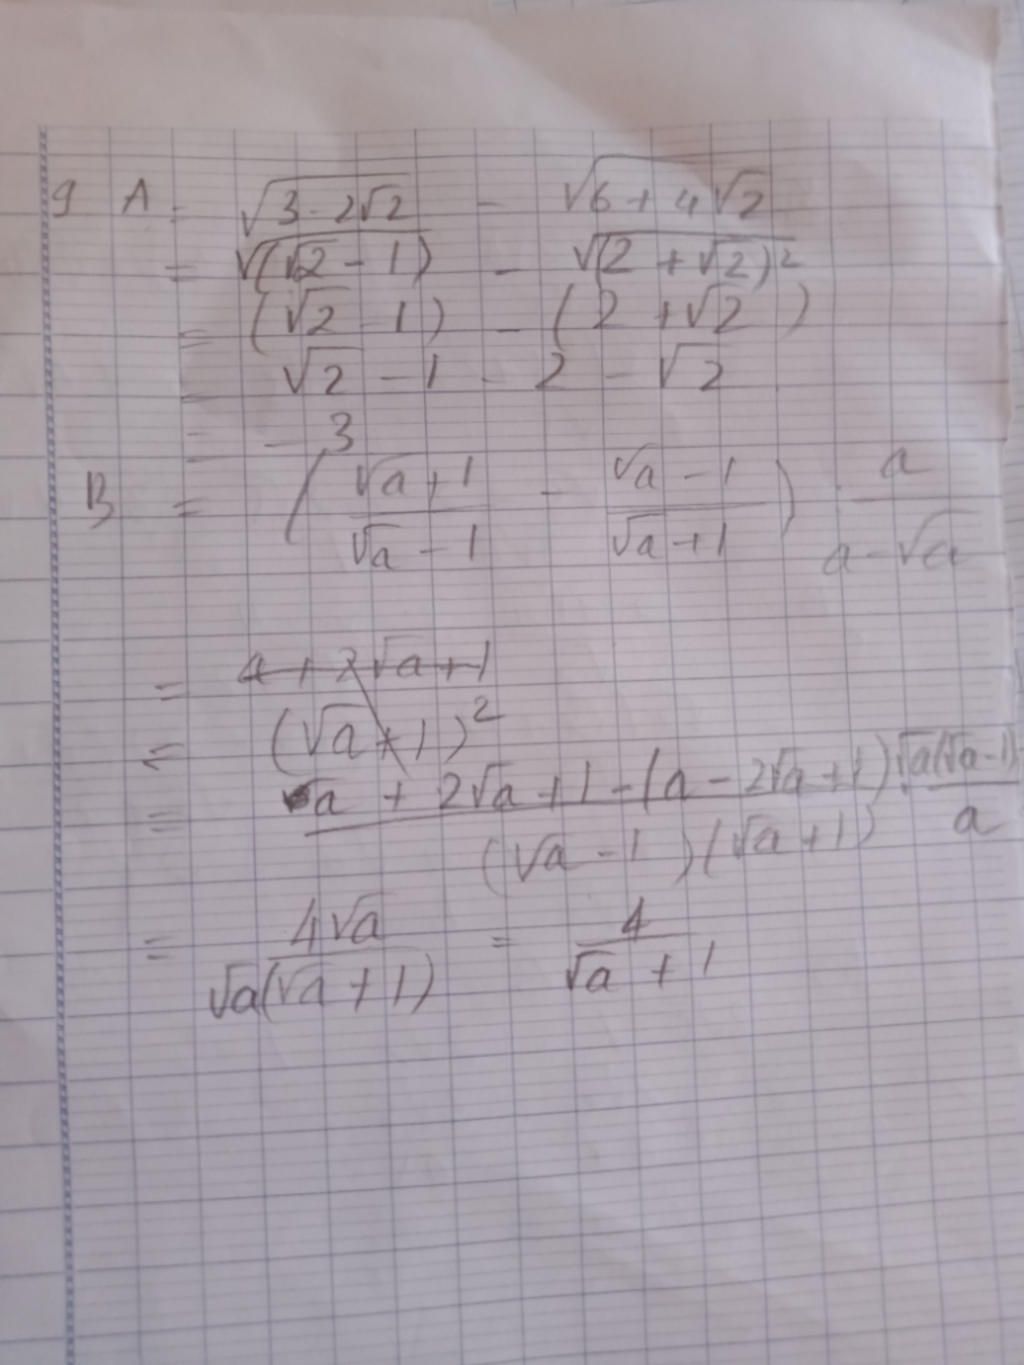 9 A = √(3-2√2) - √(6+4√2)
= √((√2-1) - √((2+√2)²
= (√2-1) - (2+√2)
= √2-1-2-√2
= -3
B = ((√a+1)/(√a-1) - (√a-1)/(√a+1)) . a/(a-√a)
= 4+2√a+1
= (√a+1)²
= (a+2√a+1-(a-2√a+1))/((√a-1)(√a+1)) . √a(√a-1)/a
= 4√a/(√a(√a+1)) = 4/(√a+1)